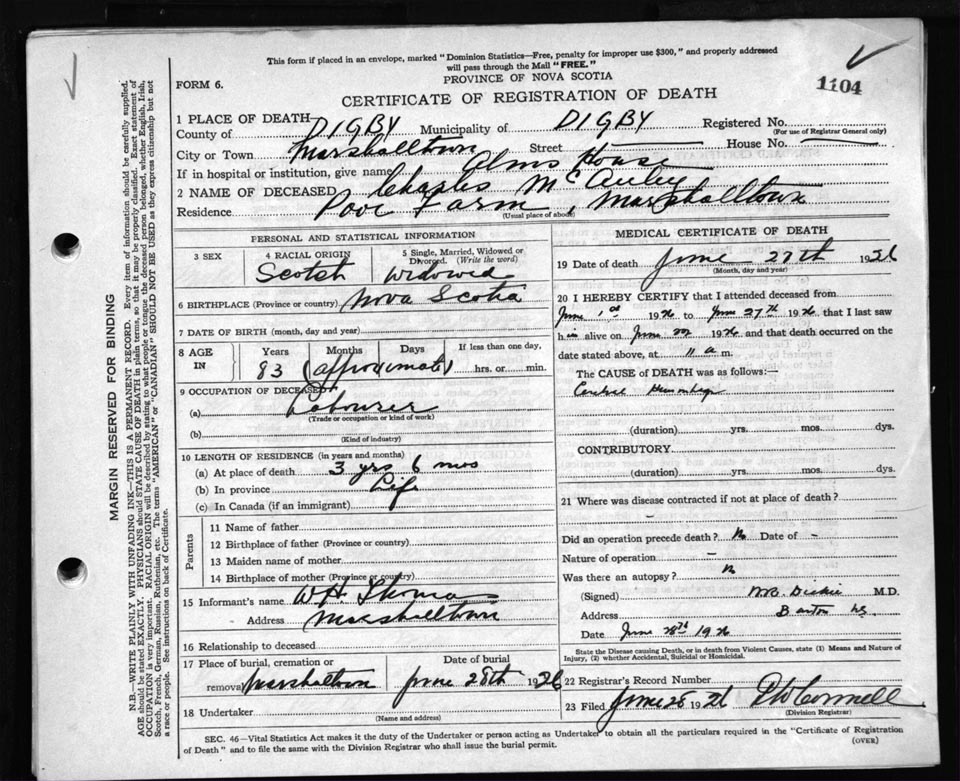 This form if placed in an envelope, marked "Dominion Statistics—Free, penalty for improper use $300," and properly addressed
will pass through the Mail "FREE."
PROVINCE OF NOVA SCOTIA
FORM 6.
1104
CERTIFICATE OF REGISTRATION OF DEATH
1 PLACE OF DEATH
County of DIGBY Municipality of DIGBY Registered No.
(For use of Registrar General only)
City or Town Marshalltown Street House No.
If in hospital or institution, give name Alms House
2 NAME OF DECEASED Charles McAuley
Residence Poor Farm, Marshalltown
(Usual place of abode)
PERSONAL AND STATISTICAL INFORMATION
3 SEX
4 RACIAL ORIGIN
Scotch
5 Single, Married, Widowed or
Divorced. (Write the word)
Widowed
6 BIRTHPLACE (Province or country) Nova Scotia
7 DATE OF BIRTH (month, day and year)
8 AGE
IN
Years Months Days If less than one day,
83 (approximate) hrs. or min.
9 OCCUPATION OF DECEASED
(a) Labourer
(Trade or occupation or kind of work)
(b)
(Kind of industry)
10 LENGTH OF RESIDENCE (in years and months)
(a) At place of death 3 yrs 6 mos
(b) In province Life
(c) In Canada (if an immigrant)
Parents
11 Name of father
12 Birthplace of father (Province or country)
13 Maiden name of mother
14 Birthplace of mother (Province or country)
15 Informant's name W H Thomas
Address Marshalltown
16 Relationship to deceased
17 Place of burial, cremation or
removal Marshalltown
Date of burial
June 28th 1926
18 Undertaker
(Name and address)
MEDICAL CERTIFICATE OF DEATH
19 Date of death June 27th 1926
(Month, day and year)
20 I HEREBY CERTIFY that I attended deceased from
June 1st 1926 to June 27th 1926, that I last saw
him alive on June 22 1926 and that death occurred on the
date stated above, at 11 a m.
The CAUSE of DEATH was as follows:—
(duration) yrs. mos. dys.
CONTRIBUTORY
(duration) yrs. mos. dys.
21 Where was disease contracted if not at place of death?
–
Did an operation precede death? No Date of –
Nature of operation –
Was there an autopsy? No
(Signed) M.D.
Address Barton NS
Date June 28th 1926
State the Disease causing Death, or in death from Violent Causes, state (1) Means and Nature of
Injury, (2) whether Accidental, Suicidal or Homicidal.
22 Registrar's Record Number
23 Filed June 28 1926
(Division Registrar)
SEC. 46—Vital Statistics Act makes it the duty of the Undertaker or person acting as Undertaker to obtain all the particulars required in the "Certificate of Registration
of Death" and to file the same with the Division Registrar who shall issue the burial permit.
(OVER)
MARGIN RESERVED FOR BINDING
N.B.—WRITE PLAINLY WITH UNFADING INK—THIS IS A PERMANENT RECORD. Every item of information should be carefully supplied.
AGE should be stated EXACTLY. PHYSICIANS should STATE CAUSE OF DEATH in plain terms, so that it may be properly classified. Exact statement of
OCCUPATION is very important. RACIAL ORIGIN will be described by stating to what people or tongue the deceased person belonged, whether English, Irish,
Scotch, French, German, Russian, Ruthenian, etc. The terms "AMERICAN" or "CANADIAN" SHOULD NOT BE USED as they express citizenship but not
a race or people. See instructions on back of Certificate.